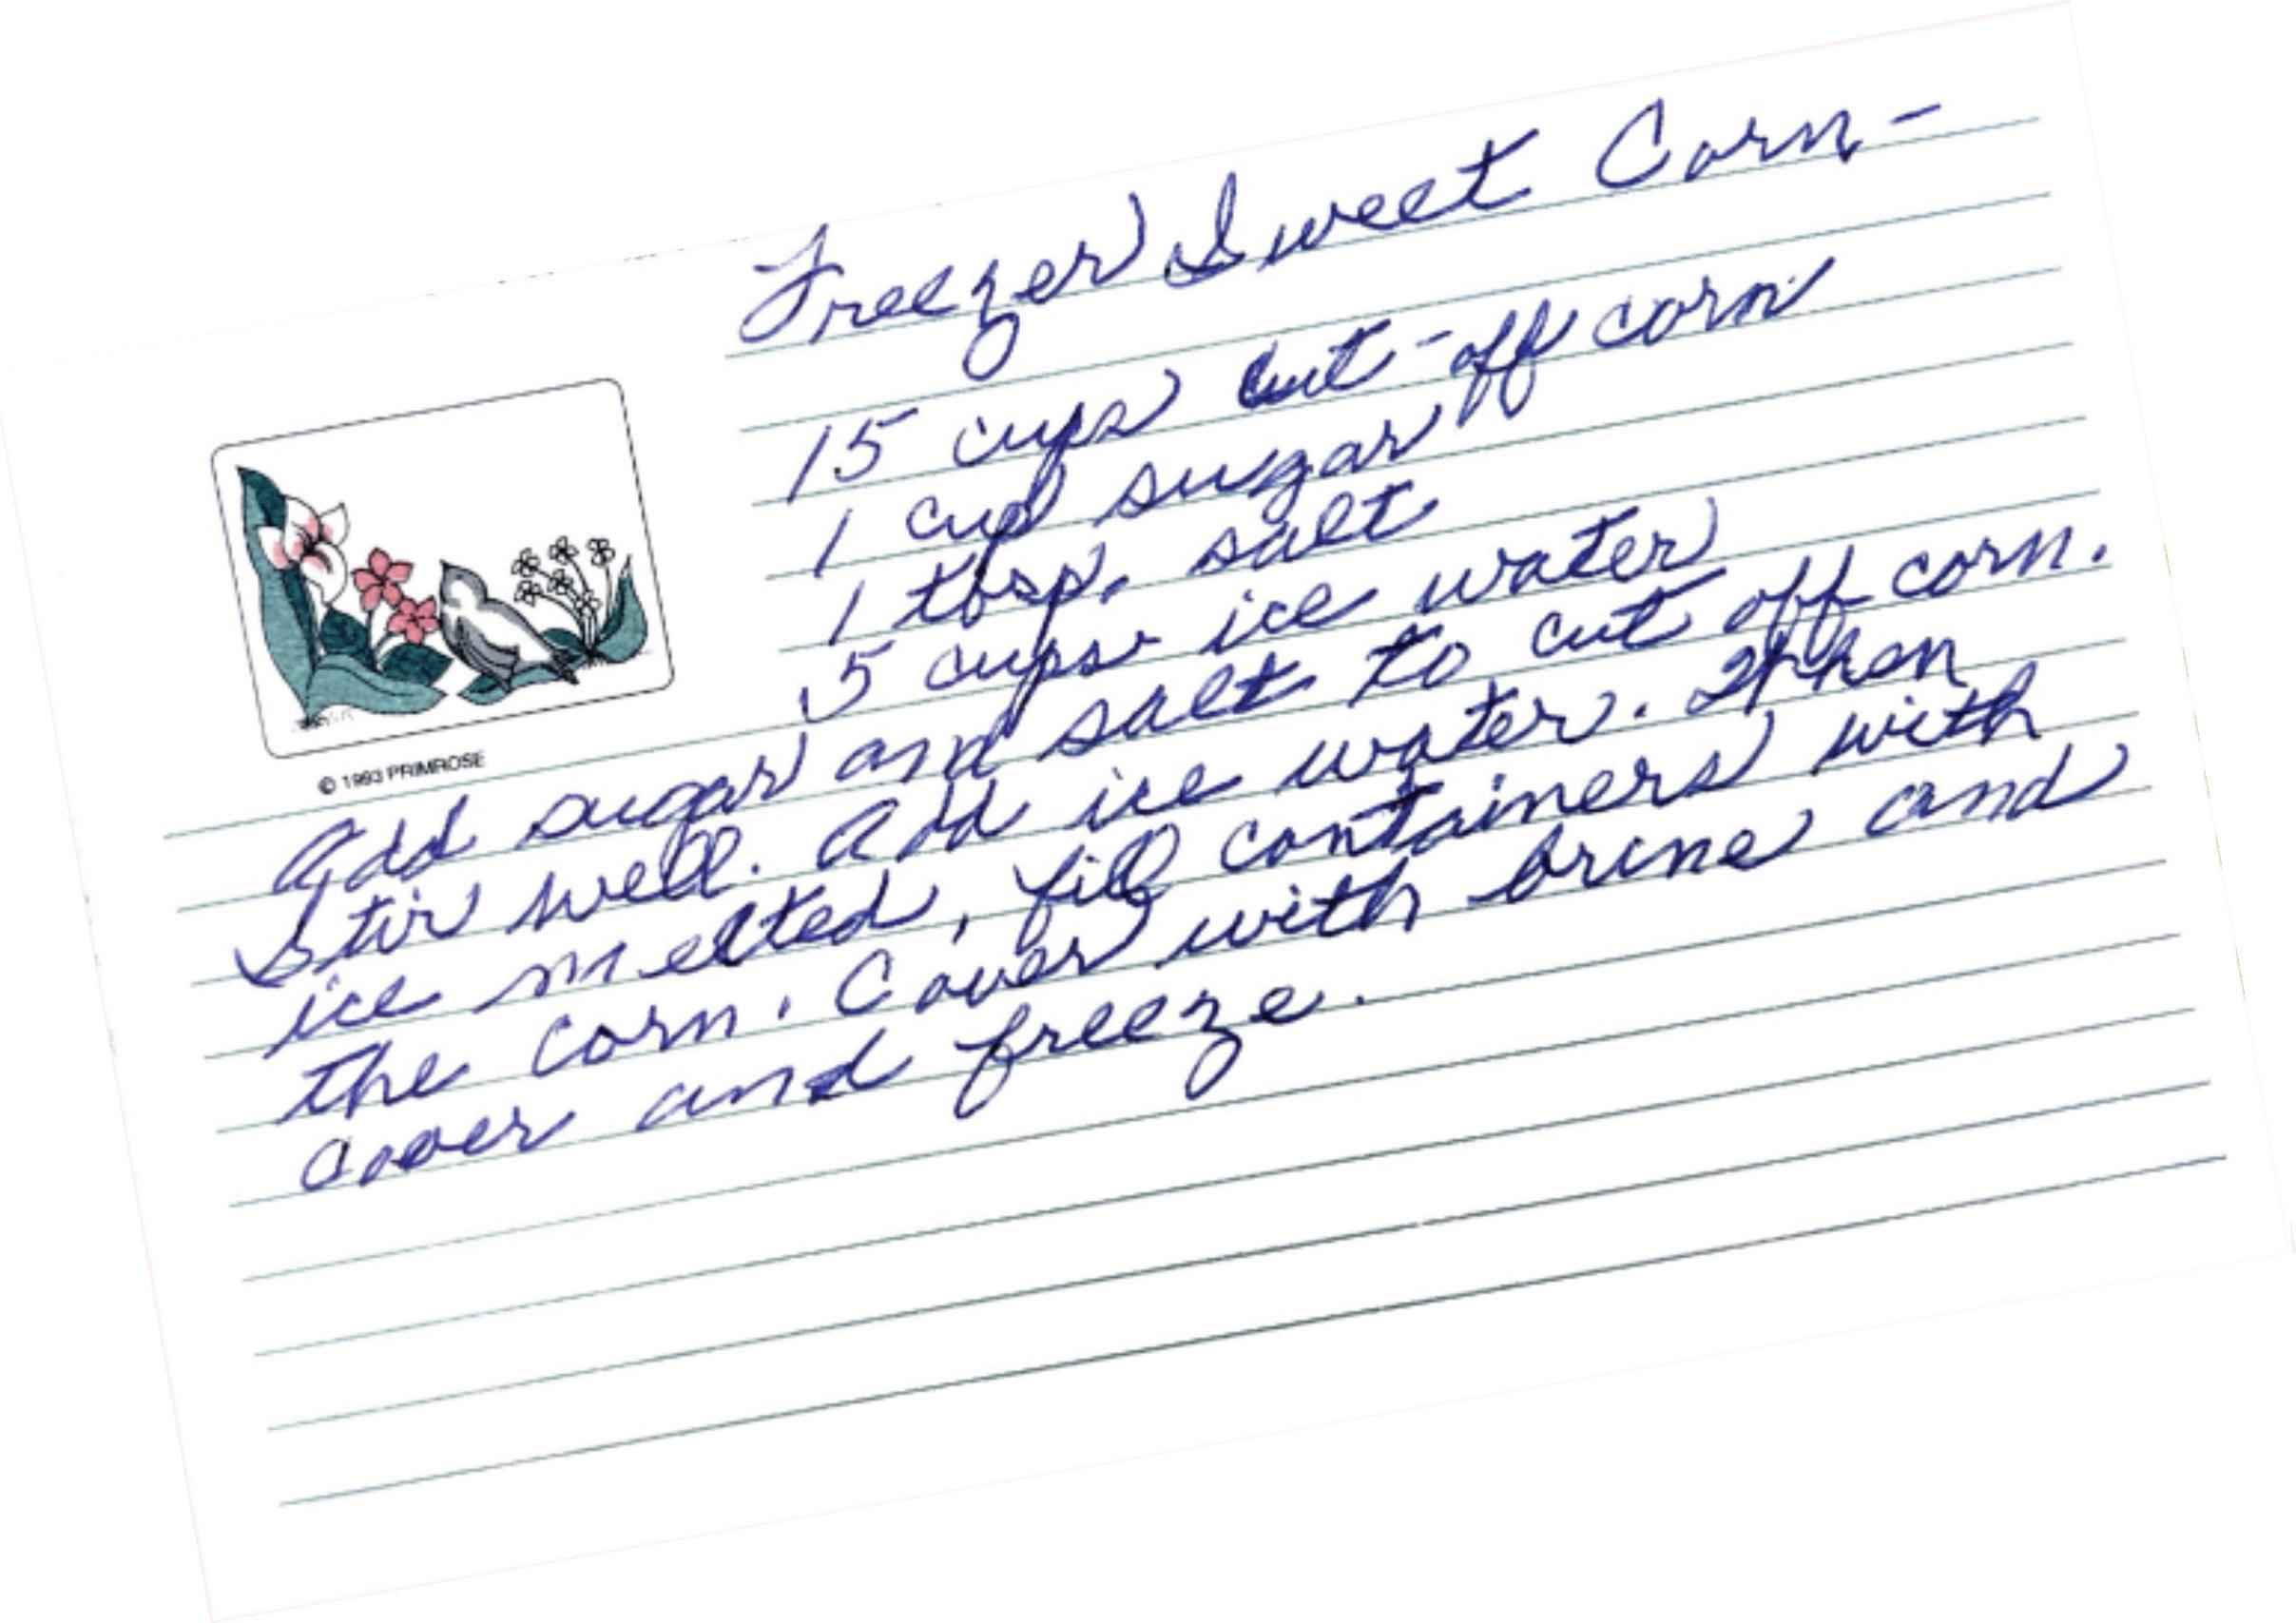 Freezer Sweet Corn -
15 cups cut-off corn
1 cup sugar
1 tbsp. salt
5 cups ice water
© 1993 PRIMROSE
Add sugar and salt to cut off corn.
Stir well. Add ice water. When
ice melted, fill containers with
the corn. Cover with brine and
cover and freeze.